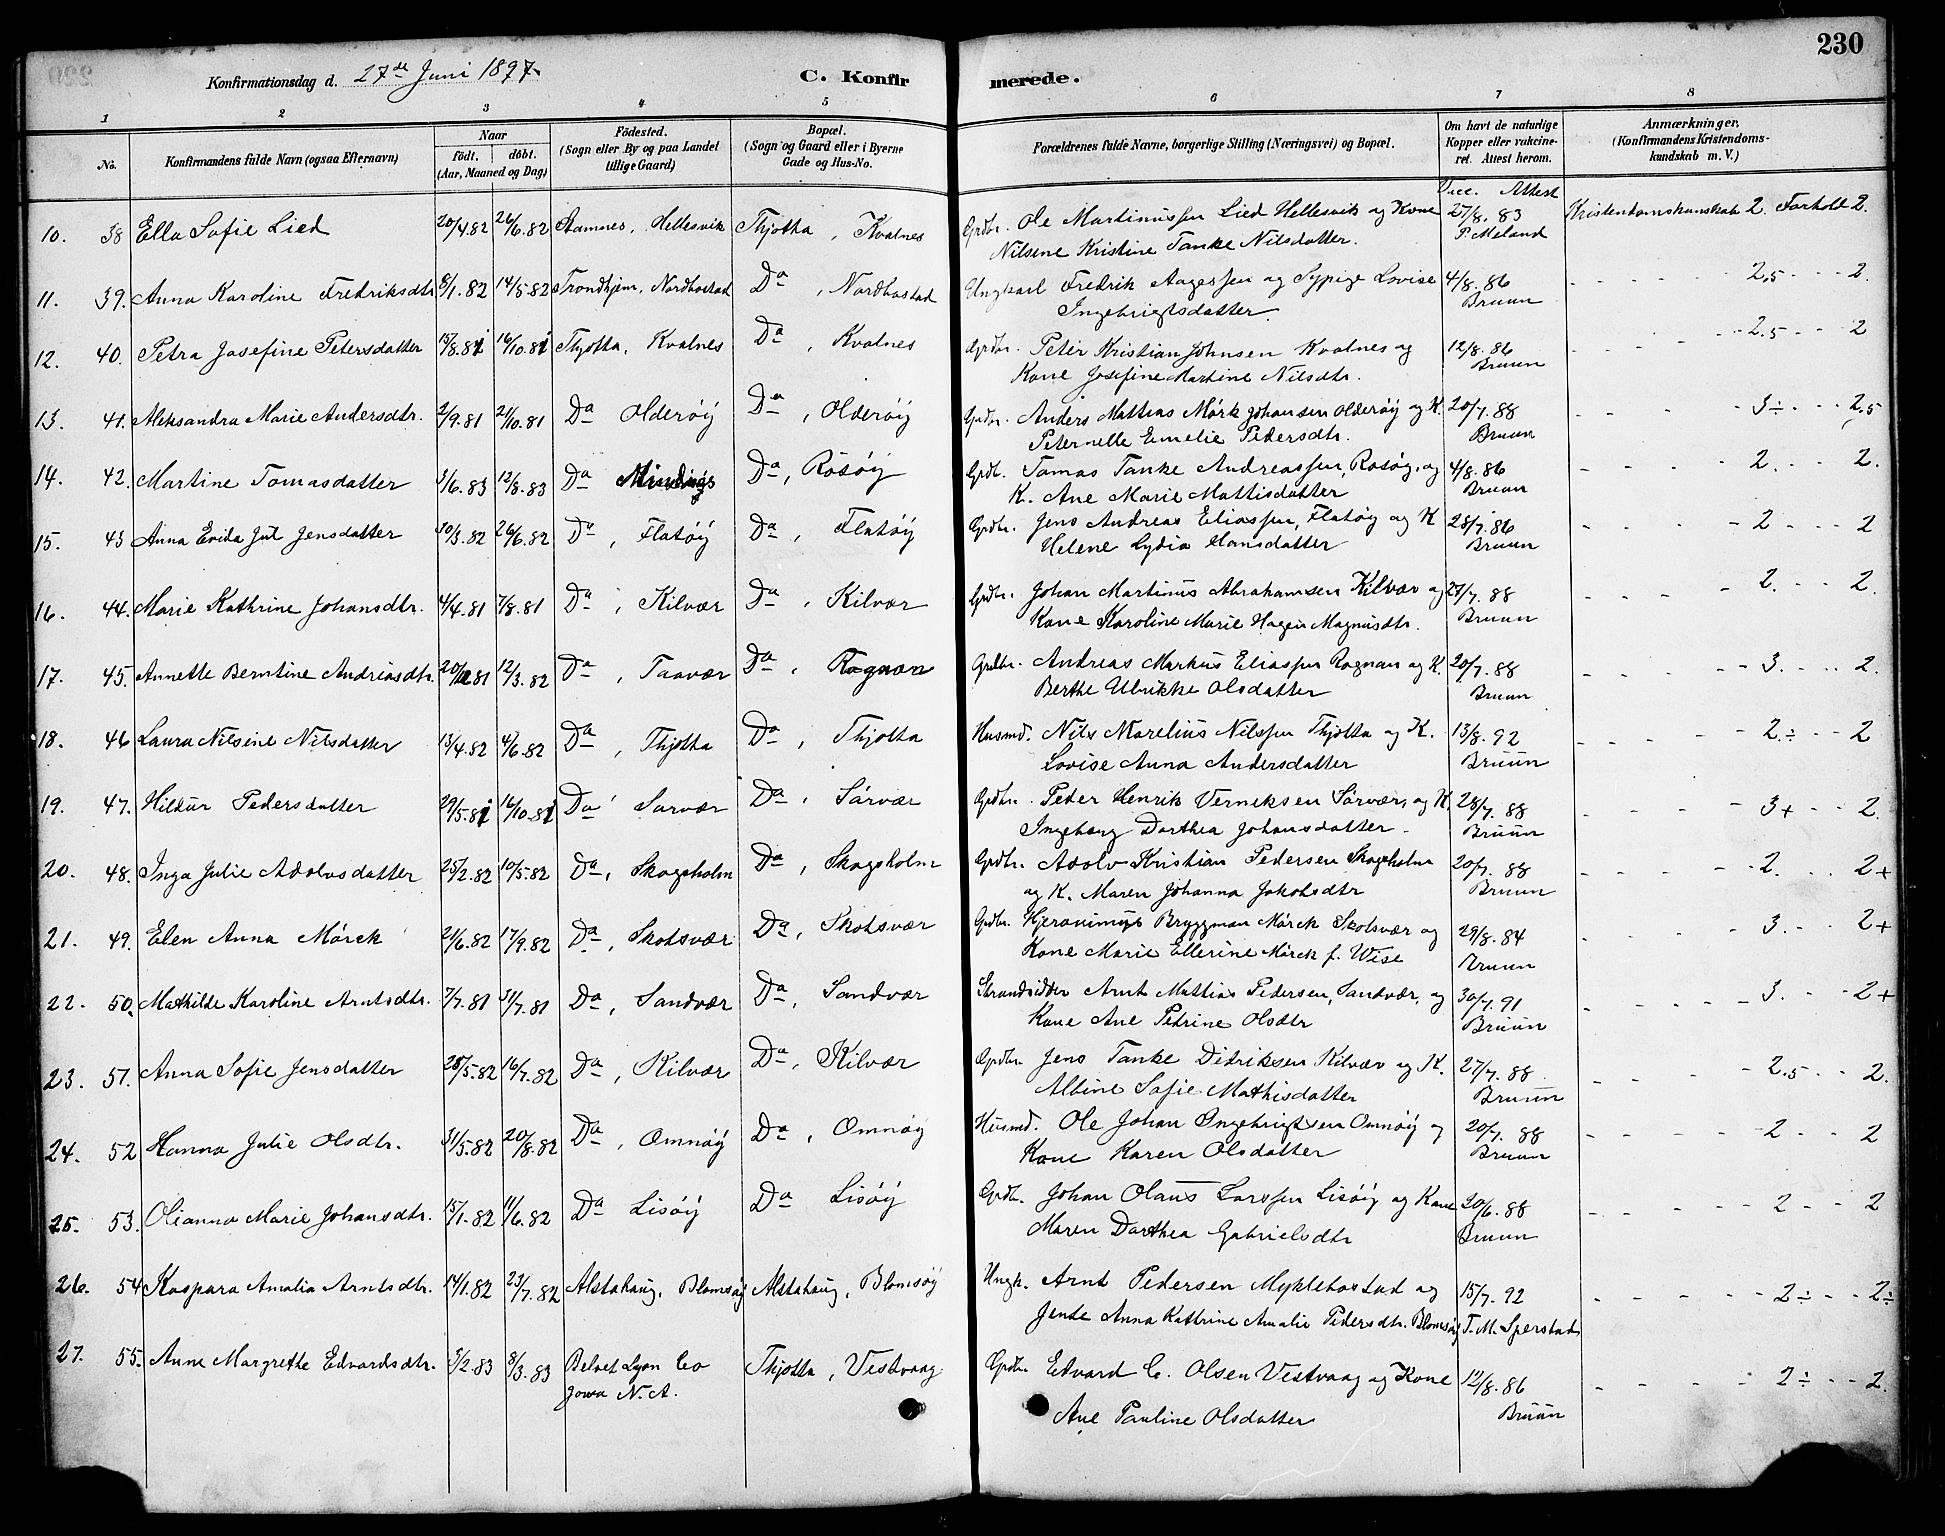 230
Konfirmationsdag d. 27de Juni 1897.
C. Konfirmerede.
1 2 3 4 5 6 7 8
No. Konfirmandens fulde Navn (ogsaa Efternavn)
Naar födt. döbt. (Aar, Maaned og Dag)
Födested. (Sogn eller By og paa Landet tillige Gaard)
Bopæl. (Sogn og Gaard eller i Byerne Gade og Hus-No.
Forældrenes fulde Navne, borgerlige Stilling (Næringsvei) og Bopæl.
Om havt de naturlige Kopper eller vakcineret. Attest herom.
Anmærkninger. (Konfirmandens Kristendomskundskab m. V.)
Vacc. Attest
10. 38 Ella Sofie Lied 20/4.82 26/6.82 Stamnes, Hellesvik Thjøtta, Kvalnes Grdbr. Ole Martinussen Lied Hellesvik og Kone 27/8. 83 Kristendomskunskab 2. Forhold 2.
Nilsine Kristine Tanke Nilsdatter. P. Meland
11. 39. Anna Karoline Fredriksdtr 8/1.82 14/5.82 Trondhjem, Nordbostad Da, Nordbostad Ungkarl Fredrik Aagessen og Sypige Lovise 4/8.86 - - - - 2,5 - - - 2.
Ingebrigtsdatter. Bruun
12. 40. Petra Josefine Petersdatter 15/8.81 16/10.81 Thjøtta, Kvalnes Da, Kvalnes Grdbr. Peter Kristian Johnsen Kvalnes og 12/8.86 - - - - 2.5 - - - 2
Kone Josefine Martine Nilsdtr. Bruun
13. 41. Aleksandra Marie Andersdtr. 2/9.81 2/10.81 Da Olderøy Da, Olderøy Grdbr. Anders Mattias Mørk Johansen Olderøy og K. 20/7.88 - - - - 3÷ - - - 2,5
Peternelle Emelie Pedersdtr. Bruun
14. 42. Martine Tomasdatter 3/6.83 12/8.83 Da Da, Rosøy Grdb. Tomas Tanke Andreassen, Rosøy, og 4/8.86 - - - - 2. - - - 2.
K. Ane Marie Mattisdatter Bruun
15. 43 Anna Evida Jul Jensdatter 30/3.82 26/6.82 Da, Flatøy Da, Flatøy Grdbr. Jens Andreas Eliassen, Flatøy og K 28/7.86 - - - - 2 - - - 2
Helene Lydia Hansdatter Bruun
16. 44. Marie Kathrine Johansdtr. 4/4.81 7/8.81 Da, Kilvær Da, Kilvær Grdbr. Johan Martinus Abrahamsen Kilvær og 27/7.88 - - - - 2. - - 2.
Kone Karoline Marie Hagen Magnusdtr. Bruun
17. 45. Annette Berntine Andriasdtr. 20/12.81 12/3.82 Da, Taavær Da, Rognan Grdbr. Andreas Markus Eliassen Rognan og K. 20/7.88 - - - - 3. - - - 2.
Berthe Ulrikke Olsdatter Bruun
18. 46 Laura Nilsine Nilsdatter 13/4.82 4/6.82 Da, Thjøtta Da, Thjøtta Husmd. Nils Marelius Nilssen Thjøtta og K. 13/8.92 - - - - 2.÷ - - 2
Lovise Anna Andersdatter Bruun
19. 47. Hildur Pedersdatter 29/5.81 16/10.81 Da Sørvær Da, Sørvær Grdbr. Peter Henrik Verneksen Sørvær, og K. 28/7.88 - - - - 3+ - - 2.
Ingeborg Dorthea Johansdatter. Bruun
20. 48. Inga Julie Adolvsdatter 25/2.82 10/5.82 Da, Skogsholm Da, Skogsholm Grdbr. Adolv Kristian Pedersen Skogsholm 20/7.88 - - - - 2. - - - 2+
og K. Maren Johanna Jakobsdtr Bruun
21. 49. Elen Anna Mörck 21/6.82 17/9.82 Da, Skotsvær Da, Skotsvær Grdbr. Hjeronimus Bryggman Mörck Skotsvær og 29/8.84 - - - - 3. - - 2+
Kone Marie Ellerine Mörck f. Wise Bruun
22. 50. Mathilde Karoline Arntsdtr. 7/7.81 31/7.81 Da, Sandvær Da, Sandvær Strandsidder Arnt Mattias Pedersen, Sandvær, og 30/7.91 - - - - 3. - - 2+
Kone Ane Petrine Olsdtr Bruun
23. 51. Anna Sofie Jensdatter 28/5.82 16/7.82 Da, Kilvær Da, Kilvær Grdbr. Jens Tanke Didriksen Kilvær og K. 27/7.88 - - - - 2.5 - - 2.
Albine Sofie Mathisdatter Bruun
24. 52 Hanna Julie Olsdtr. 31/5.82 20/8.82 Da, Omnøy Da, Omnøy Husmd. Ole Johan Ingebrigtsen Omnøy og 20/7.88 - - - - 2 - - - 2
Kone Karen Olsdatter Bruun
25. 53. Olianna Marie Johansdtr. 15/1.82 11/6.82 Da Lisøy Da Lisøy Grdbr. Johan Olaus Larssen Lisøy og Kone 20/6.88 - - - - 2 - - - 2
Maren Dorthea Gabrielsdtr Bruun
26. 54 Kaspara Amalia Arntsdtr. 14/1.82 23/7.82 Alstahaug, Blomsøy Alstahaug, Blomsøy Ungk. Arnt Pedersen Myklebostad og 15/7.92 - - - - 2÷ - - 2÷
Jente Anna Kathrine Amalie Pedersdtr. Blomsøy T. M. Sperstad
27. 55. Anne Margrethe Edvardsdtr. 5/2.83 8/3.83 Beloet Lyon Co Thjøtta, Vestvaag Grdbr. Edvard C. Olsen Vestvaag og Kone 12/8.86 - - - - 2÷ - - 2.
Jowa N. A. Ane Pauline Olsdatter Bruun